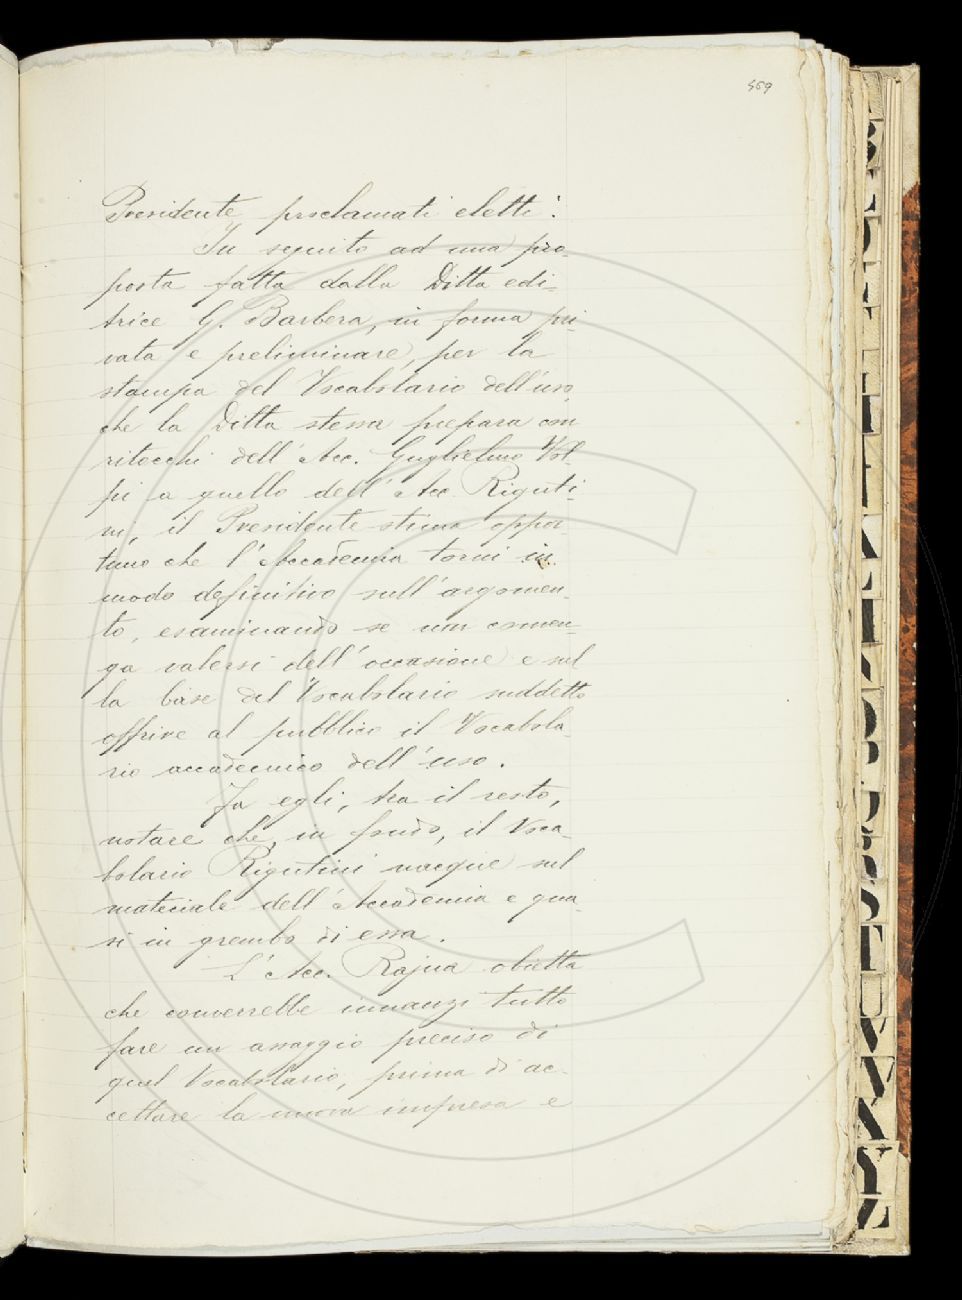 569
Presidente proclamati eletti.
In seguito ad una pro-
posta fatta dalla Ditta edi-
trice G. Barbera, in forma pri-
vata e preliminare, per la
stampa del Vocabolario dell'uso,
che la Ditta stessa prepara con
ritocchi dell'Acc. Guglielmo Vol-
pi a quello dell'Acc. Riguti-
ni, il Presidente stima oppor-
tuno che l'Accademia torni in
modo definitivo sull'argomen-
to, esaminando se non conven-
ga valersi dell'occasione e sul
la base del Vocabolario suddetto
offrire al pubblico il Vocabola-
rio accademico dell'uso.
Fa egli, tra il resto,
notare che, in fondo, il Voca-
bolario Rigutini nacque sul
materiale dell'Accademia e qua-
si in grembo di essa.
L'Acc. Rajna obietta
che converrebbe innanzi tutto
fare un assaggio preciso di
quel Vocabolario, prima di ac-
cettare la nuova impresa e
B
C
D
E
F
H
I
K
L
M
O
P
Q
R
S
T
U
V
W
X
Y
Z